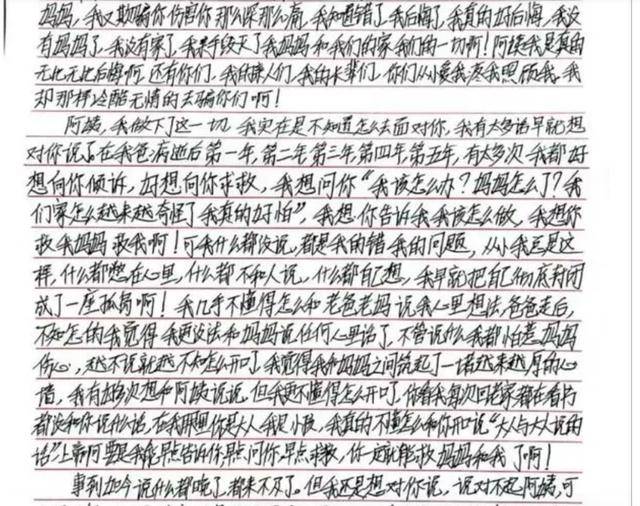 妈妈，我又欺骗你伤害你那么深那么痛，我知道错了，我后悔了，我真的好后悔，我没
有妈妈了，我没有家了，我亲手毁灭了我妈妈和我们的家我们的一切啊！阿姨我是真的
无比无比后悔啊，还有你们，我的亲人们，我的长辈们，你们从小爱我疼我照顾我，我
却那样冷酷无情的去骗你们啊！
阿姨，我做下了这一切，我实在是不知道怎么去面对你，我有太多话早就想
对你说了，在我爸病逝后第一年，第二年，第三年，第四年，第五年，有太多次，我都好
想向你倾诉，好想向你求救，我想问你“我该怎么办？妈妈怎么了？我
们家怎么越来越奇怪了，我真的好怕”，我想你告诉我我该怎么做，我想你
救我妈妈救我啊！可我什么都没说，都是我的错我的问题，从小我总是这
样，什么都憋在心里，什么都不和人说，什么都自己想，我早就把自己彻底封闭
成了一座孤岛啊！我几乎不懂得怎么和老爸老妈说我心里想法，爸爸走后，
不知怎的我觉得我更没法和妈妈说任何心里话了，不管说什么我都怕惹妈妈
伤心，越不说就越不知怎么开口了，我觉得我和妈妈之间筑起了一堵越来越厚的心
墙，我有好多次想和阿姨说说，但我更不懂得怎么开口了，你看我每次回老家都在看书
都没和你说什么话，在我那里你是大人我是小孩，我真的不懂怎么和你开口说“大人与大人说的
话”上帝阿要是我能早点告诉你，早点问你，早点求救，你一定就能救妈妈和我了啊！
事到如今说什么都晚了，都来不及了。但我还是想对你说，说对不起阿姨，可